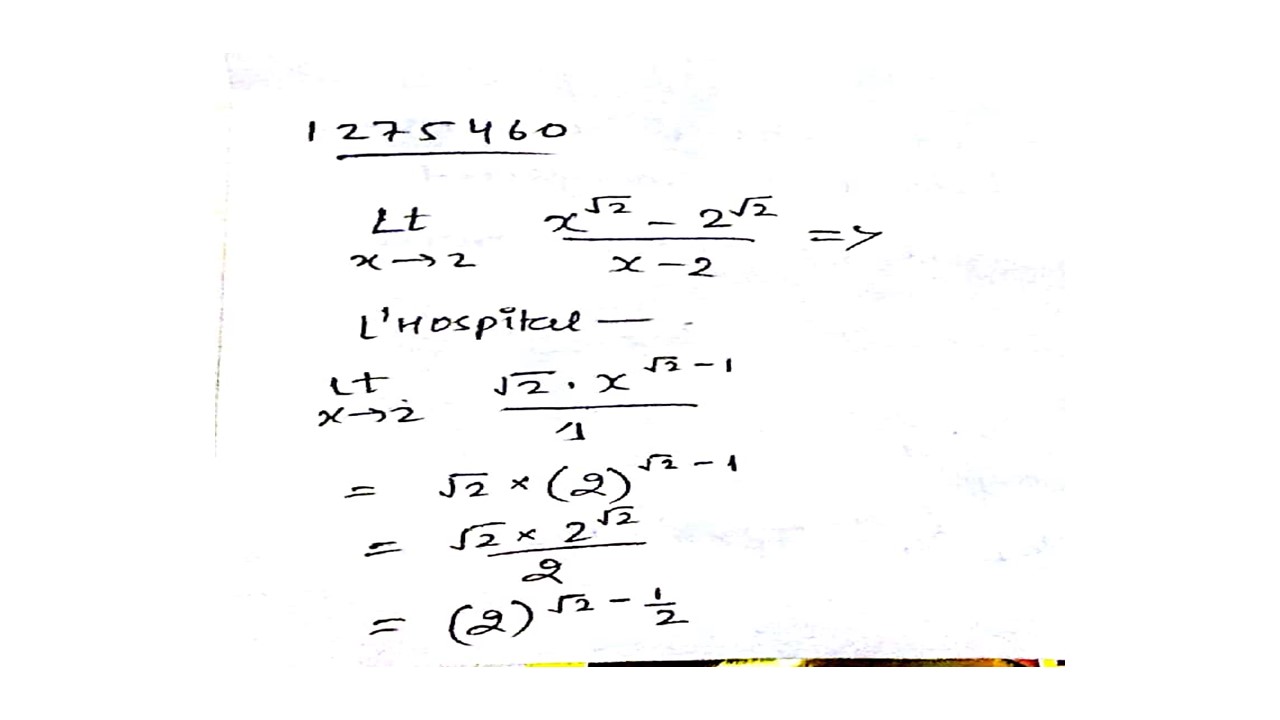 1275460
Lt x→2 (x^√2 − 2^√2)/(x − 2) =>
L'Hospital —
Lt x→2 (√2 . x^(√2 − 1))/1
= √2 × (2)^(√2 − 1)
= (√2 × 2^√2)/2
= (2)^(√2 − 1/2)